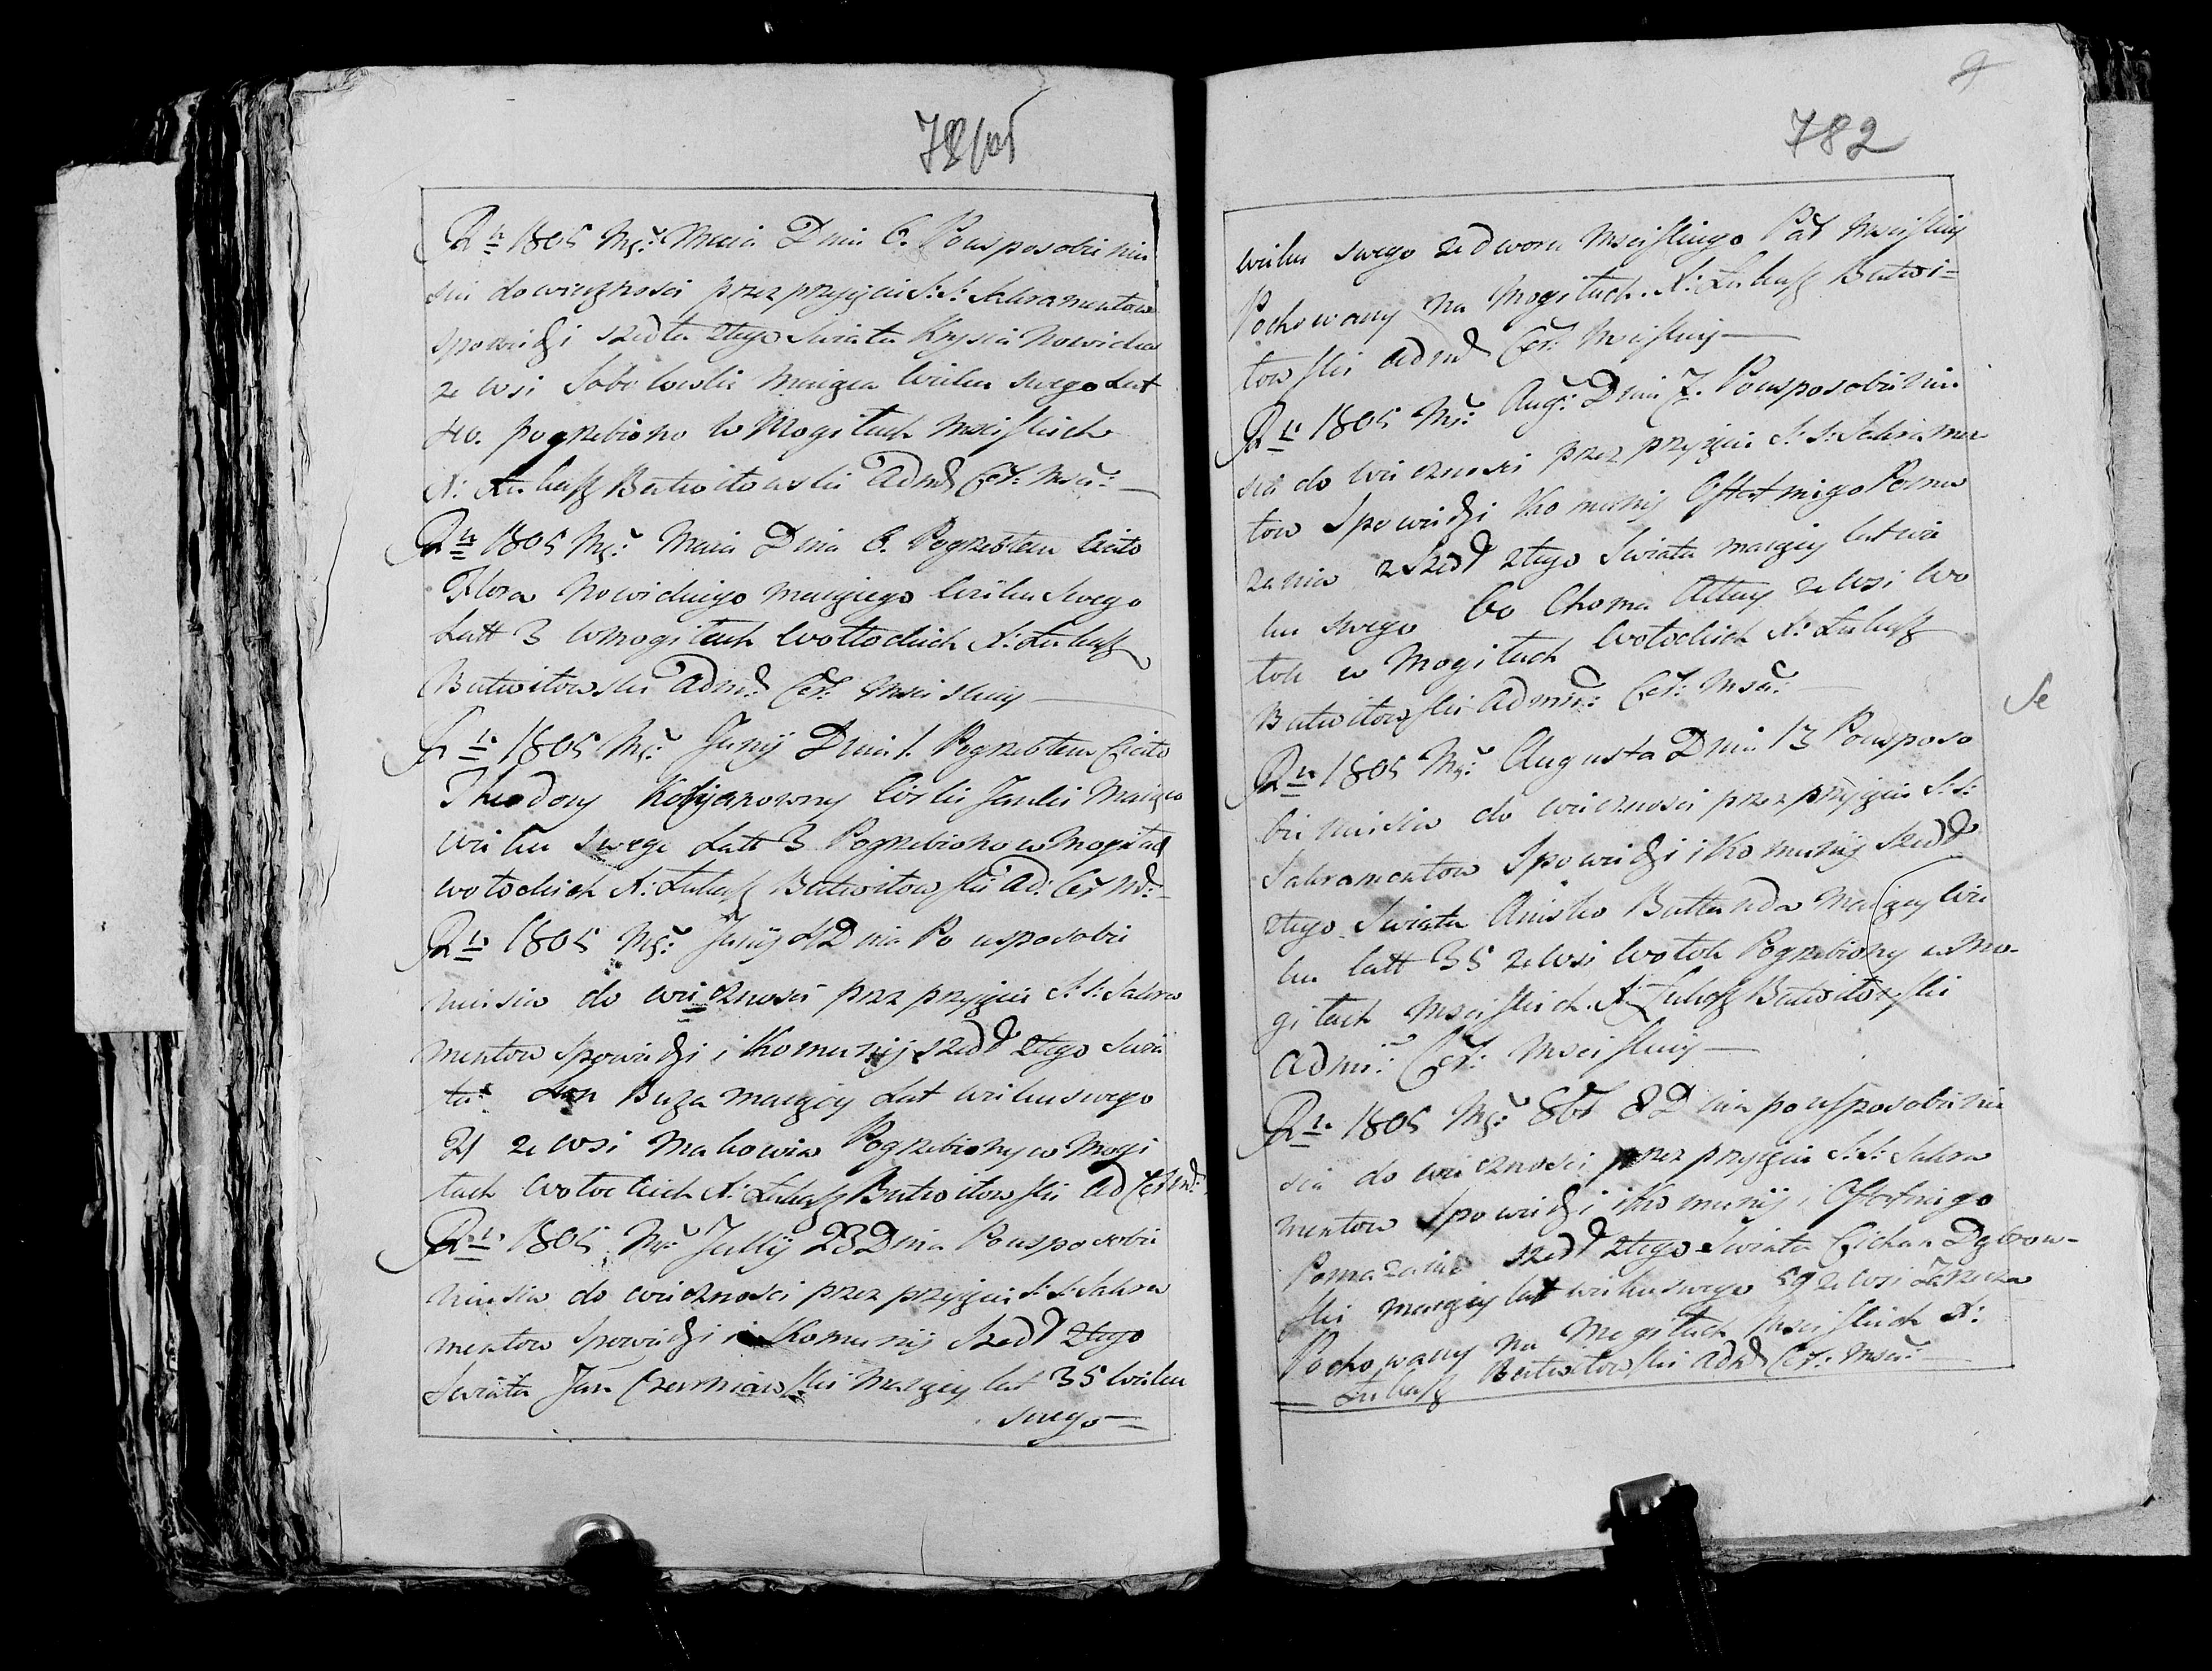 782
R u 1805 Mca: Maia Dnia 6. Pousposobieniu
sia do wiecznosci przez przyjęcie S: S: Sakramentow
spowiedzi szedła ztego swiata Krysia Nowicka
ze wsi Sobolewki maiąca wieku swego Lat
40. pogrzebiono w Mogiłach Mscisskich
X: Łukasz Butwiłowski Adm: Cer: Msci:
R u 1805 Mca: Maia Dnia 6. Pogrzebłem Ciało
Flora Nowickiego maiącego wieku swego
Latt 3 w mogiłach wołłockich X: Łukasz
Butwiłowski Adm: Cer: Mscisskiey
R u 1805 Mca: Juny Dnia 1. Pogrzebłem Ciało
Theodory Corki Janki Maiąca
wieku swego Latt 3 Pogrzebiono w Mogiłach
wołockich X: Łukasz Butwiłowski Ad: Cer Ms:
R u 1805 Mca: Juny Dnia Po usposobie
nia do wiecznosci przez przyjęcie S: S: Sakra
mentow spowiedzi i Komunij szedł ztego swia
ta: Buza maiący Lat wieku swego
21 ze wsi Makowia Pogrzebiony w Mogi
łach wołockich X: Łukasz Butwiłowski Ad Cer M:
R u 1805 Mca: Jully 23 Dnia Pousposobie
niusia do wiecznosci przez przyjęcie S: S: Sakra
mentow spowiedzi i Komunij szedł ztego
swiata Jan Czerniawski Maiący lat 35 wieku
swego
782
wieku swego ze dworu Mscisskiego Mscisskiey
Pochowany na Mogiłach. X: Łukasz Butwi=
łowski Adm Cer: Mscisskiey
R u 1805 Mca: Aug: Dnia 7. Pousposobieniu
sia do wiecznosci przez przyjęcie S: S: Sakramen
tow spowiedzi Komunij Ostatniego Poma
zania zszedł ztego swiata maiący lat wie
ku swego 60 Choma ze wsi Wo
łok w Mogiłach wołockich X: Łukasz
Butwiłowski Adm: Cer: Msci:
R u 1805 Mca: Augusta Dnia 13 Pousposo
bieniusia do wiecznosci przez przyjęcie S: S:
Sakramentow spowiedzi i Komunij szedł
ztego swiata maiący wie
ku latt 35 ze wsi Wołok Pogrzebiony w Mo-
giłach Mscisskich. X: Łukasz Butwiłowski
Adm: Cer: Mscisskiey
R u 1805 Mca: 8br 8 Dnia po usposobieniu
sia do wiecznosci przez przyjęcie S: S: Sakra
mentow spowiedzi i Komunij i Ostatniego
Pomazania szedł ztego swiata Cichan Dąbrow-
ski maiący lat wieku swego 59 ze wsi
Pochowany na Mogiłach Mscisskich X:
Łukasz Butwiłowski Adm Cer: Msci: